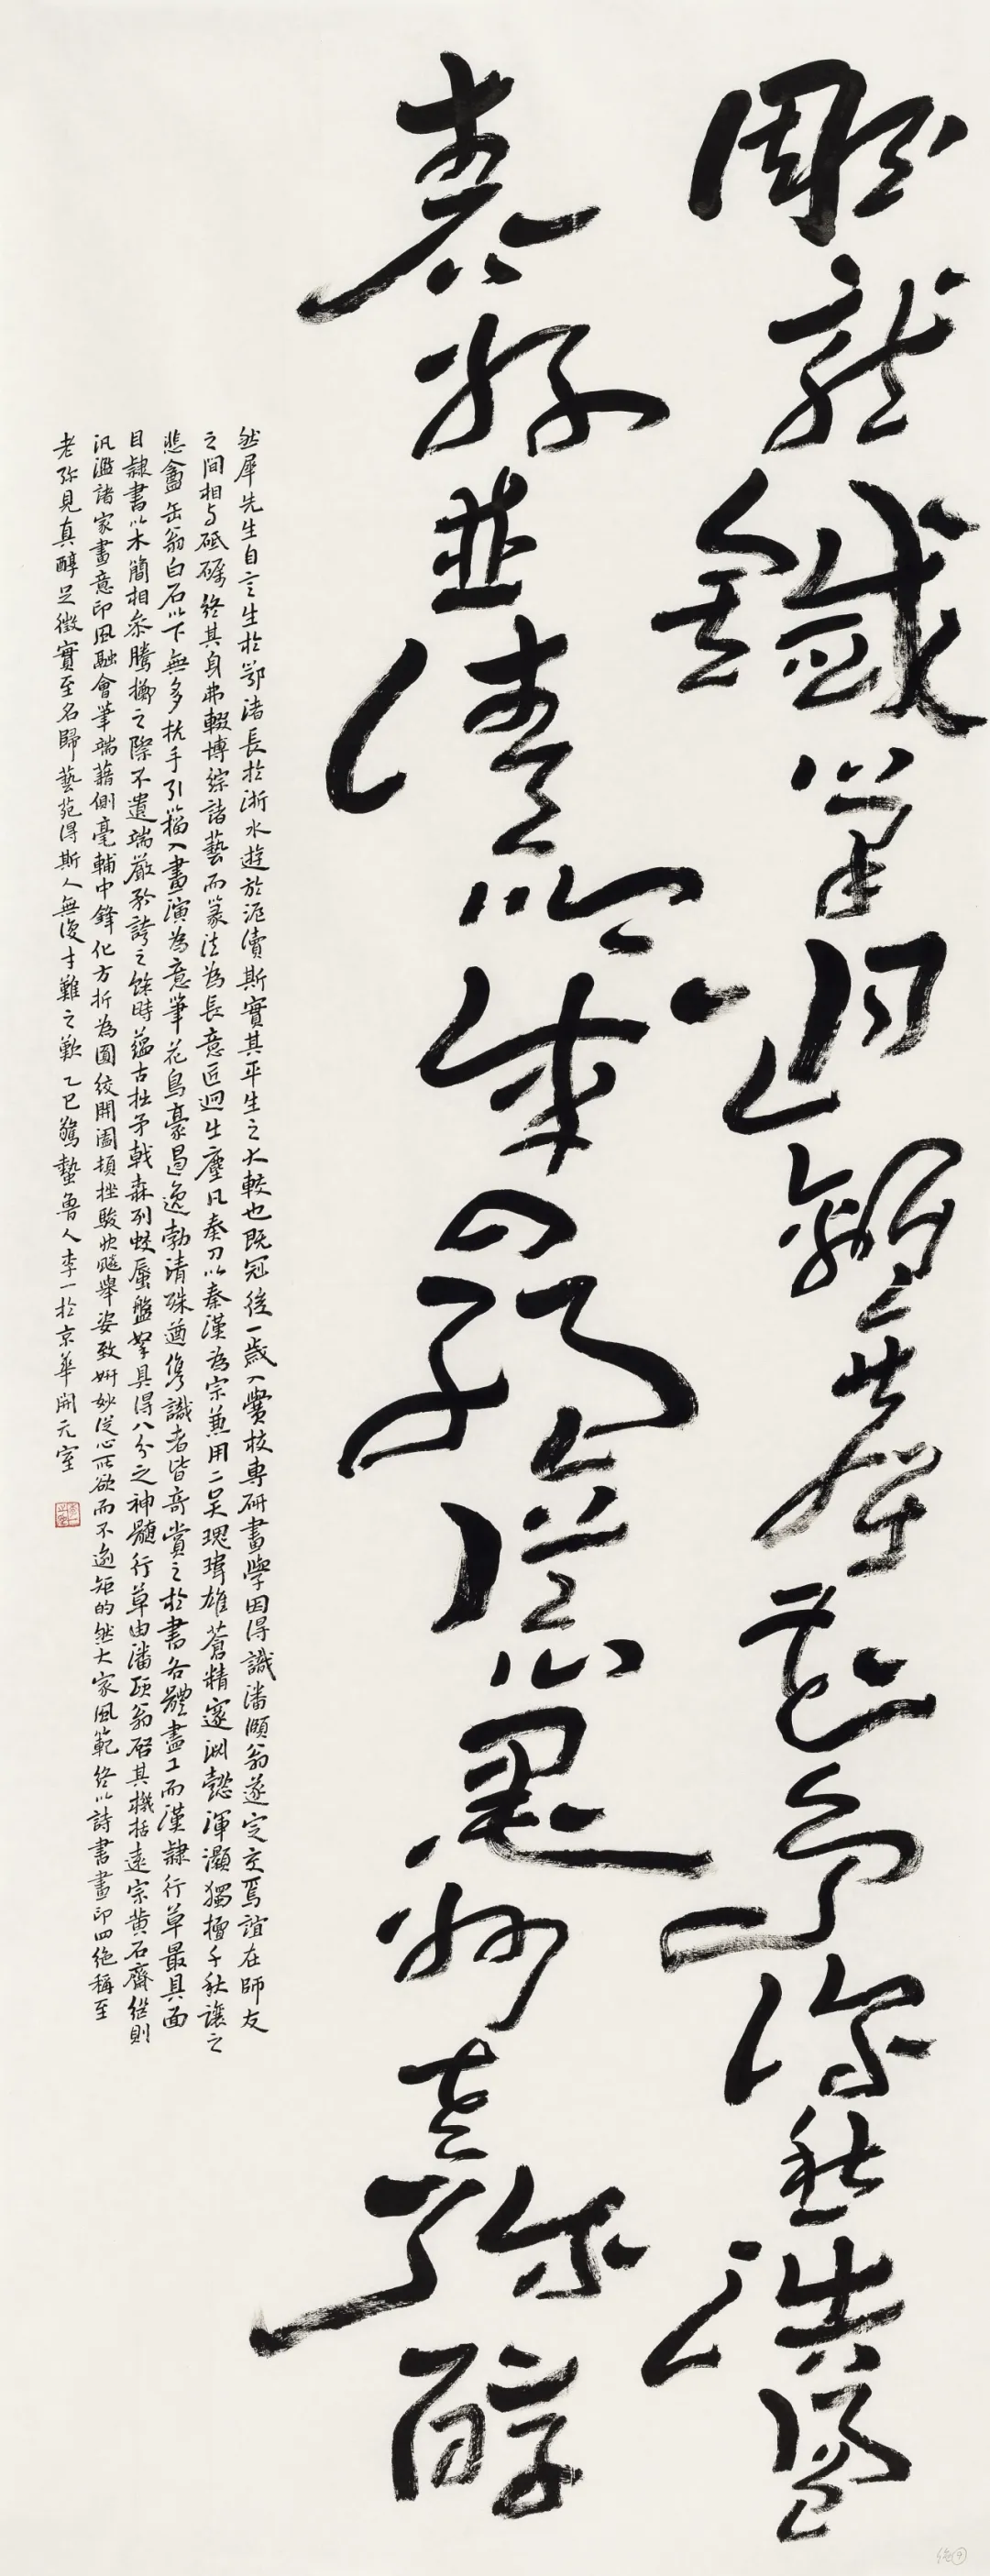 雕龍鐵筆迥無塵花鳥深秋浩蕩
春好並清以舉翁意墨妙老彌醇
然犀先生自言生於鄂渚長於浙水遊於滬瀆斯實其平生之大較也既冠後一歲入黌校專研畫學因得識潘頤翁遂定交焉誼在師友
之間相與砥礪終其身弗輟博綜諸藝而篆法為長意匠迥生塵凡奏刀以秦漢為宗兼用二吳瑰瑋雄蒼精邃淵懿渾灝獨擅千秋讓之
悲盦缶翁白石以下無多抗手引以猫入畫演為意筆花鳥豪曷逸勃清殊遒雋識者皆奇賞之於書各體盡工而漢隸行草最具面
目隸書以木簡相參騰擲之際不遺端嚴矜誇之餘時蘊古拙矛戟森列蛟蜃盤拏具得八分之神髓行草由潘頤翁啟其機括遠宗黄石齋繼則
汎濫諸家畫意印風融會筆端藉側毫輔中鋒化方折為圓絞開闔頓挫駿快飈舉姿致妍妙從心所欲而不逾矩的然大家風範終以詩書畫印四絕稱至
老弥見真醇足徵實至名歸藝苑得斯人無復才難之歎 乙巳驚蟄魯人李一於京華開元室